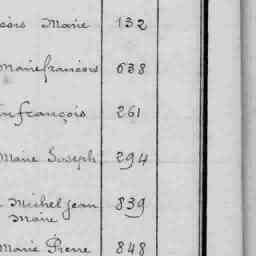 çois Marie 132
Mariefrancois 638
françois 261
Marie Joseph 294
Michel Jean 839
Marie
Marie Pierre 848